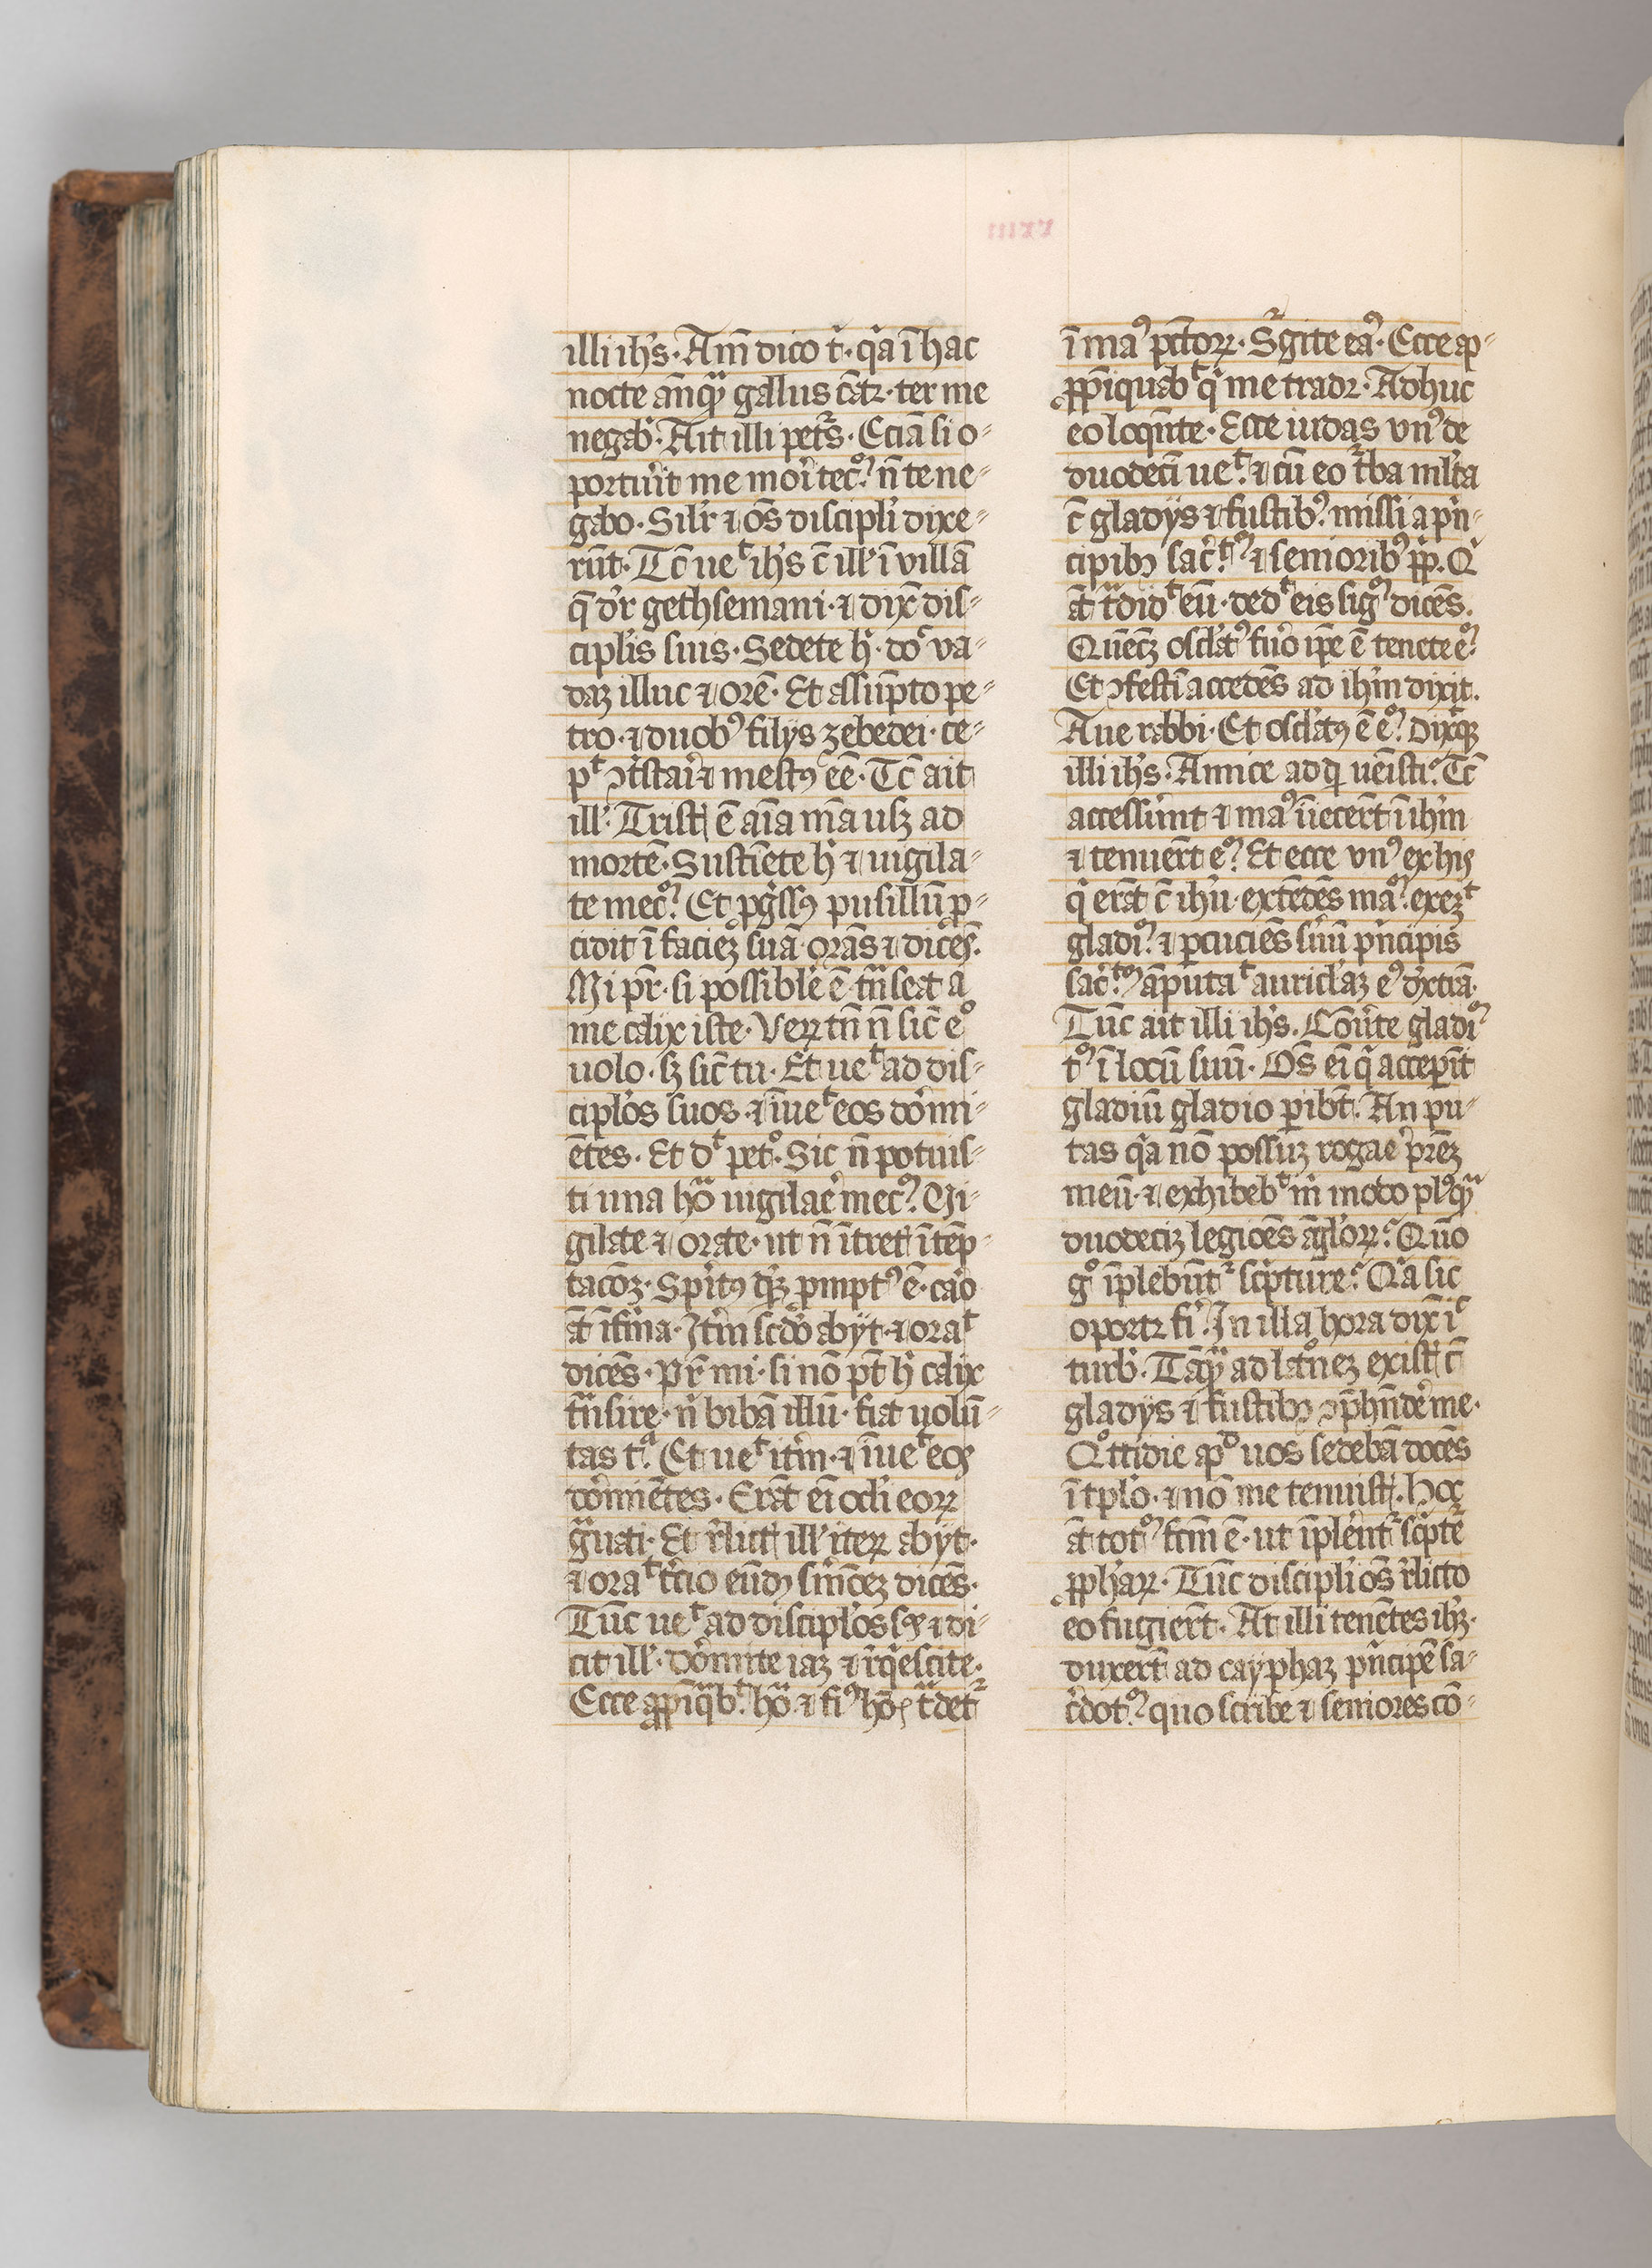 illi ih's. Am̄ dico t̓. q̓a ī hac
nocte an̄qᷓ gallus cātꝛ. ter me
negab̓. Ait illi petr̓s. Eciā si o-
portu̓it me mori tecᷓ? n̄ te ne-
gabo. Sil̓r ⁊ oēs discipl̓i dixe-
rūt. Tc̄ ueᵗ ih's c̄ ill̓ ī villā
q̄ dr̓ gethsemani. ⁊ dix̓ dis-
cipl̓is suis. Sedete h̓. doᶜ va-
daꝫ illuc ⁊ orē. Et assūpto pe-
tro. ⁊ duobꝰ filijs zebedei. ce-
pᵗ ꝯt̓stari̓ ⁊ mestꝰ eē. Tc̄ ait
ill̓. Tristꝭ ē aīa mā usꝫ ad
mortē. Sustīete h̓ ⁊ uigila-
te mecᷓ? Et pg̓ssꝰ pusillū p-
cidit ī facieꝫ suā. orās ⁊ dicēs.
Mi pr̄. si possibile ē tᷓnseat a
me calix iste. Veꝝ tn̄ n̄ sic̄ eᵒ
uolo. sꝫ sic̄ tu. Et ueᵗ ad dis-
cipl̓os suos. ⁊ īueᵗ eos dor̓mi-
ētes. Et dᵗ petᵒ. Sic n̄ potuis-
ti una hoᷓ uigilae̓ mecᷓ? Vi-
gilate ⁊ orate. ut n̄ ītretꝭ ī tēp-
tacōꝫ. Spir̓tꝰ q̓ꝫ pmptꝰ ē. caro
āt īfirᷓma. Itm̓ sc̄do abijt. ⁊ oraᵗ
dicēs. Pr̄ mi. si nō pt̄ h̓ calix
tᷓnsire. n̄ bibā illū. fiat uolū-
tas tᵃ. Et ueᵗ itm̓. ⁊ īueᵗ eos
dor̓miētes. Erāt ei̅ ocl̓i eoꝝ
gᷓuati. Et rl̓ictꝭ ill̓ iteꝝ abijt.
⁊ oraᵗ t̓cio eūdꝫ sr̓mōeꝫ dicēs.
Tūc ueᵗ ad discipl̓os sꝯ ⁊ di-
cit ill̓. Dor̓mite iaꝫ ⁊ rq̓escite.
Ecce appīqᷓbᵗ. hoᷓ. ⁊ fiꝰ hoīs tᷓdetᷣ
ī maꝰ pctōꝝ. Sᷣgite eaꝰ. Ecce ap-
ppīquabᵗ q̓ me tradꝛ. Adhuc
eo loqūte. Ecce iudas vnꝰ de
duodeci̅ ueᵗ. ⁊ cū eo tᷣba ml̓ta
c̄ gladijs ⁊ fustibꝰ. missi a pn̓-
cipibꝫ sac̓ᵗꝰ ⁊ senioribꝰ pp̄. Q̓
āt tᷓdidᵗ eū. dedᵗ eis sigᷓ dicēs.
Quēcꝫ oscl̓atꝰ fuo̓ ip̄e ē tenete eᷓ?
Et ꝯfestī accedēs ad ih'm dixit.
Aue rabbi. Et oscl̓atꝰ ē eᷓ? Dix̓qꝫ
illi ih's. Amice ad qͥ uēisti. Tc̄
accesser̓unt ⁊ maꝰ iīecer̄t ī ih'm
⁊ tenuer̄t eᷓ? Et ecce vnꝰ ex his
q̓ erāt c̄ ih'u. extēdēs maᷓ? exeꝫᵗ
gladiᷓ? ⁊ pcuciēs ser̓uū pn̓cipis
sac̓ᵗꝰ āputaᵗ auricl̓aꝫ eꝰ dextrā.
Tūc ait illi ih's. Cōu̓te gladiᷓ
tᷓ ī locū suū. Oēs eī q̓ acceperīt
gladiū gladio pibt̄. An pu-
tas q̓a nō possuꝫ rogae̓ pr̄eꝫ
meū. ⁊ exhibebᵗ m̓ modo pl̓qᷓ
duodeciꝫ legiōes āgl̓oꝝ. Quō
gᵒ īplebūtᷣ sc̓pture. Q̓a sic
oportꝛ fi̓. In illa hora dix̓ iᶜ
turb̓. Tāqᷓ ad latᵒneꝫ existꝭ c̄
gladijs ⁊ fustibꝫ ꝯphn̄de̓ me.
Qᵒttidie apᵈ uos sedebā docēs
ī tpl̓o. ⁊ nō me tenuistꝭ. Hoc
āt totᷓ fcm̄ ē. ut īplen̓tᷣ sc̓pte̓
pph̓aꝝ. Tūc discipl̓i oēs rl̓icto
eo fugier̄t. At illi tenētes ih'ꝫ.
duxer̄t ad caypphaꝫ pn̓cipē sa-
c̓dotᷓ? quo scribe ⁊ seniores cō-